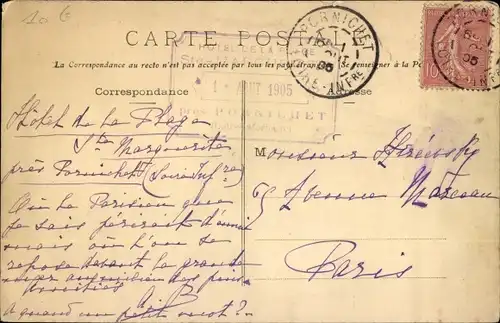 CARTE POSTALE
La Correspondance au recto n'est pas acceptée par tous les pays étrangers. Se renseigner à la Poste
Correspondance
Adresse
PORNICHET
05
LOIRE-INFRE
10
HOTEL DE LA PLAGE
1 AOUT 1905
PORNICHET
Hôtel de la Plage
Ste Marguerite
près Pornichet (Loire Infre)
Où le Parisien que
je sais périrait d'ennui
mais où l'on se
repose devant la grande
mer au milieu des pins
à quand un petit mot ?
Monsieur
65 Avenue Marceau
Paris